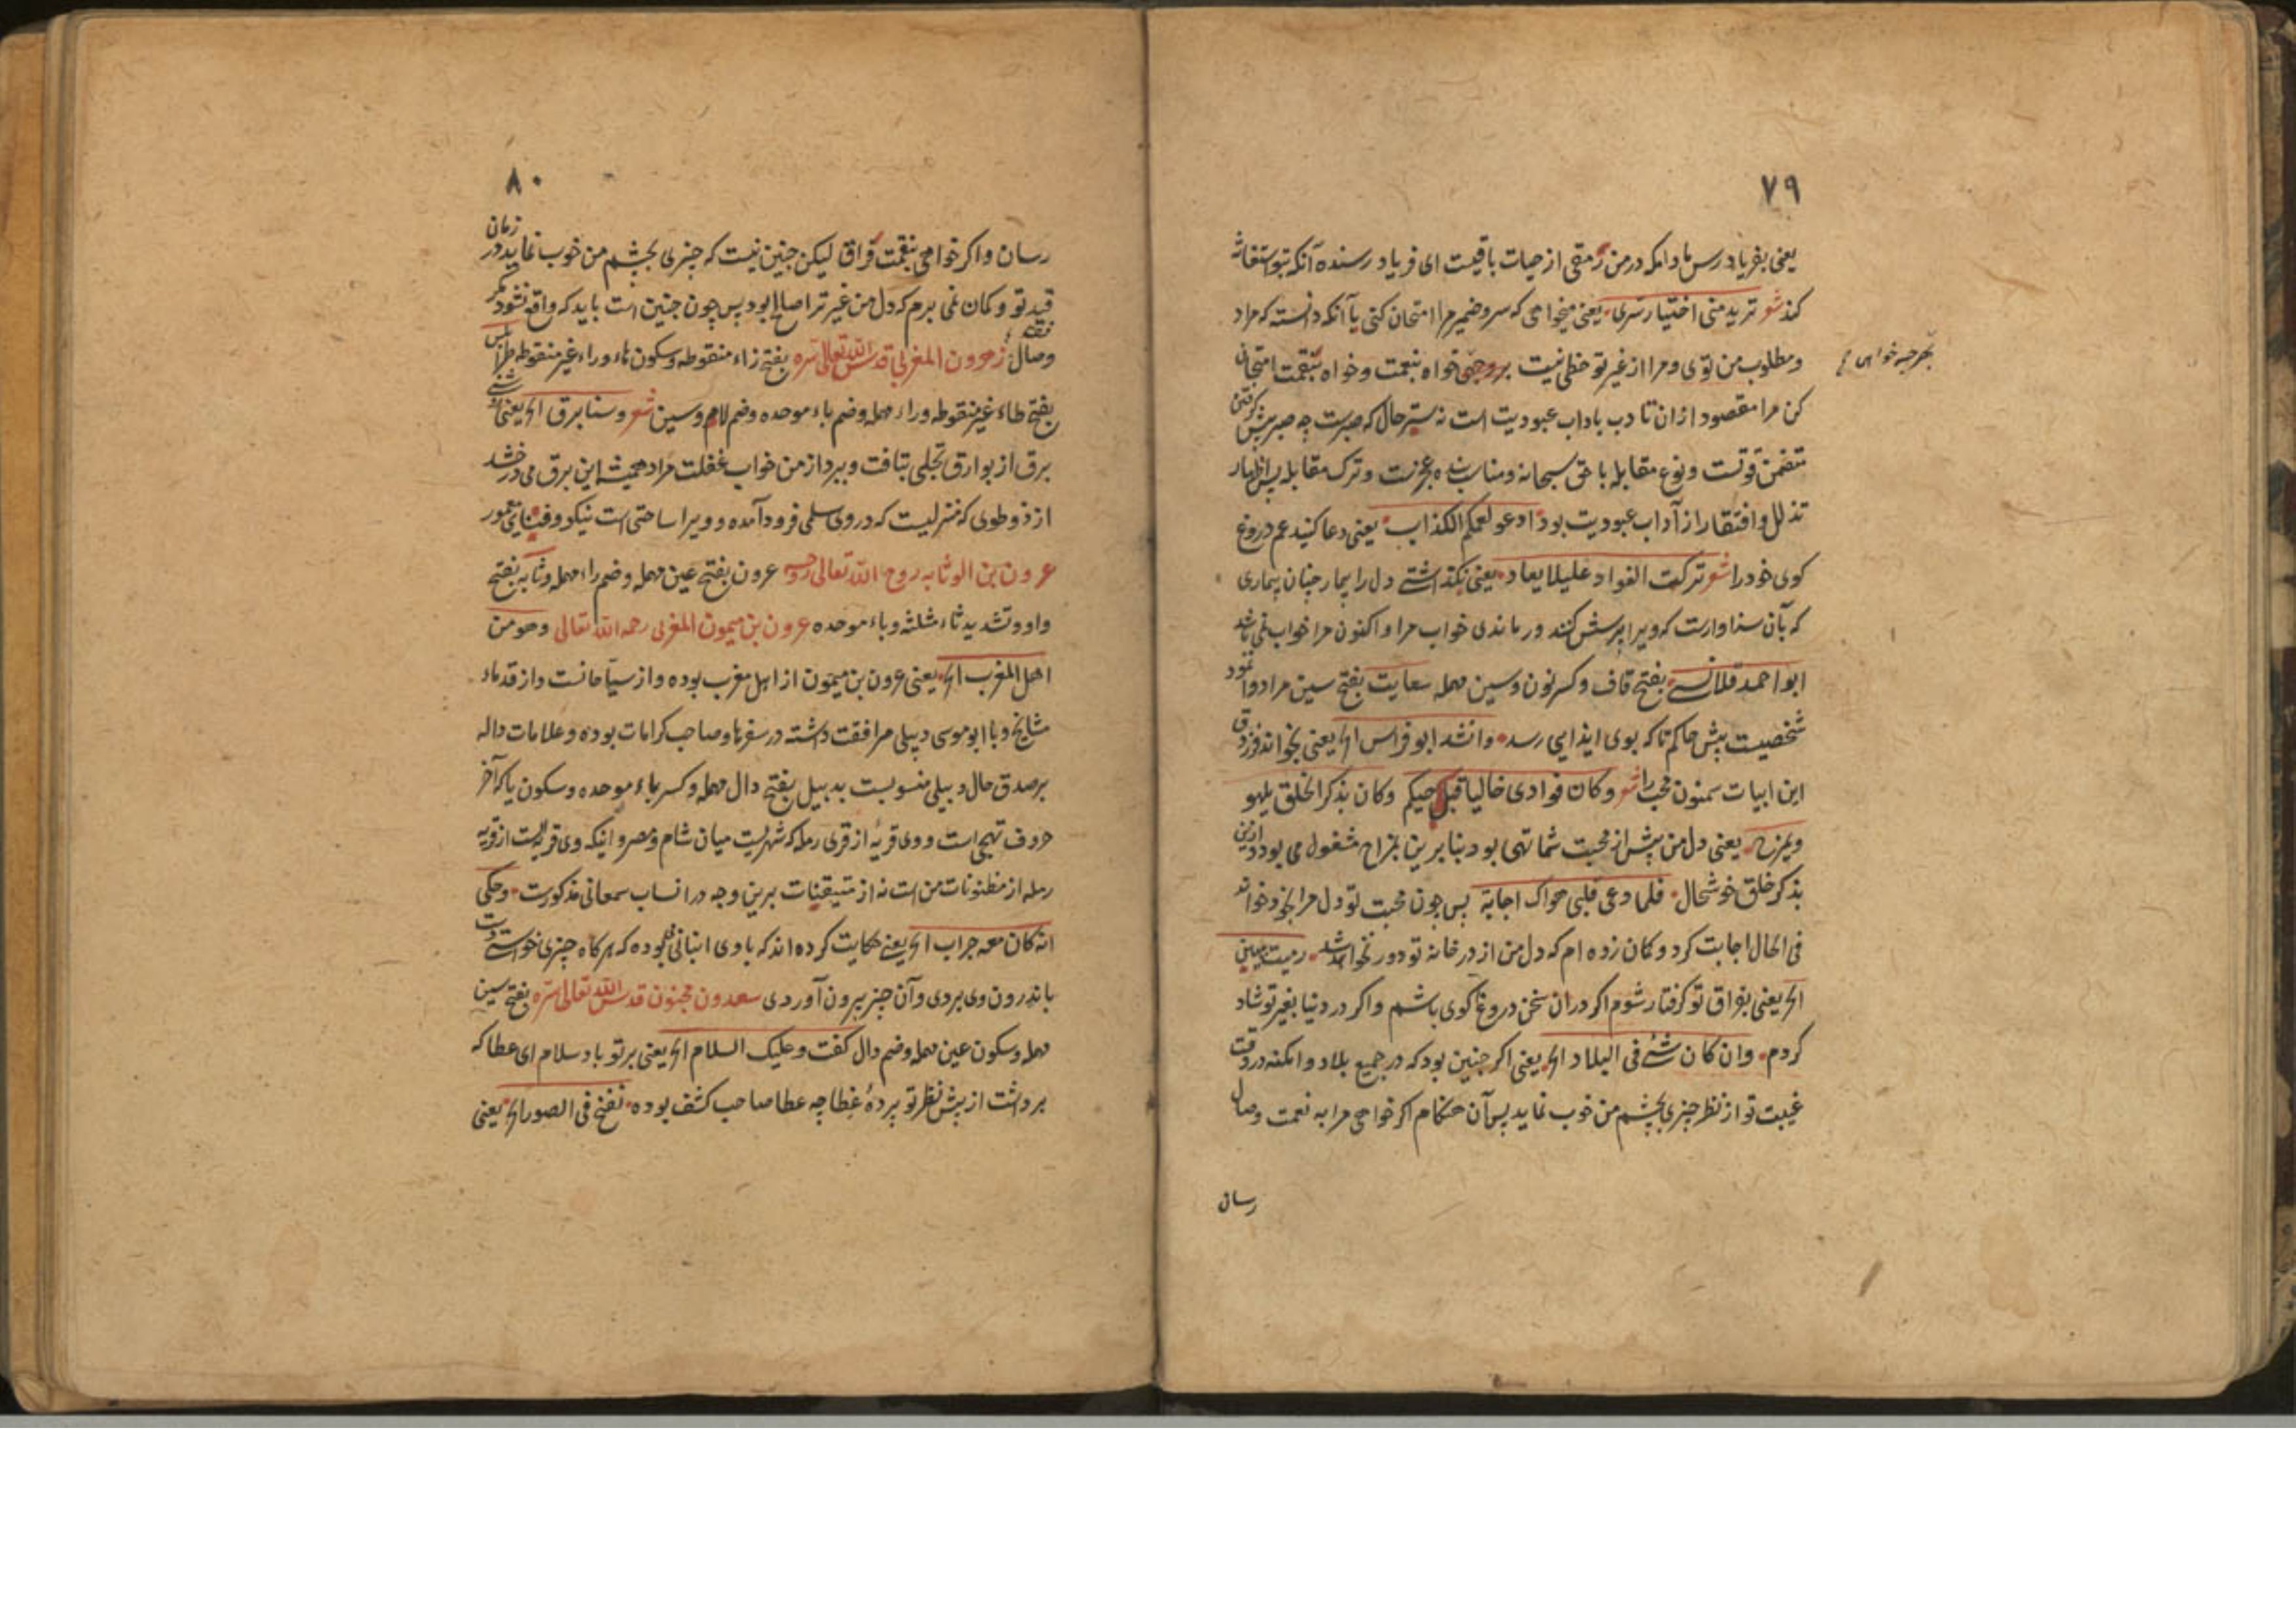 ۷۹
یعنی بفریاد رس مادامکه در من رمقی از حیات باقیست ای فریاد رسنده آنکه بتو استغاثه
کند شعر ترید منی اختبار سری یعنی میخواهی که سر و ضمیر مرا امتحان کنی یا آنکه دانسته که مراد
و مطلوب من توی و مرا از غیر تو حظی نیست بروجهی خواه بنعمت و خواه بنقمت امتحان
بهرچه خواهی
کن مرا مقصود ازان تادب باداب عبودیت است نه ستر حال که صبرست چه صبر پیش گرفتن
متضمن قوتست و نوع مقابله با حق سبحانه و مناسب بنده عجزست و ترک مقابله پس اظهار
تذلل و افتقار از آداب عبودیت بود ادعو لعمکم الکذاب یعنی دعا کنید عم دروغ
کوی خود را شعر ترکت الفواد علیلا یعاد یعنی بکذاشتی دل را بیمار چنان بیماری
که بآن سزاوارست که ویرا پرسش کنند و رماندی خواب مرا و اکنون مرا خواب نمی باشد
ابو احمد قلانسی بفتح قاف و کسر نون و سین مهمله سعایت بفتح سین مراد وانمود
شخصیت پیش حاکم تا که بوی ایذایی رسد وانشد ابو فراس الخ یعنی بخواند فرزدق
این ابیات سمنون محب را شعر و کان فوادی خالیا قبل حبکم و کان بذکر الخلق یلهو
ویمزح یعنی دل من پیش از محبت شما تهی بود بنا برین بمزاح مشغول می بود و ازین
بذکر خلق خوشحال فلما دعی قلبی هواک اجابه پس چون محبت تو دل مرا بخود خواند
فی الحال اجابت کرد و کمان زده ام که دل من از در خانه تو دور نخواهد شد رمیت ببین
الخ یعنی بفراق تو کرفتار شوم اکر دران سخن دروغ کوی باشم و اکر در دنیا بغیر تو شاد
کردم وان کان شئ فی البلاد الخ یعنی اکر چنین بود که در جمیع بلاد و امکنه در وقت
غیبت تو از نظر چیزی بچشم من خوب نماید پس آن هنکام اکر خواهی مرا به نعمت وصال
رسان
۸۰
رسان و اکر خواهی بنقمت فراق لیکن چنین نیست که چیزی بچشم من خوب نماید در زمان
قید تو و کمان نمی برم که دل من غیر ترا صالح بود پس چون چنین است باید که واقع نشود مکر
وصال زهرون المغربی قدس الله تعالی سره بفتح زاء منقوطه و سکون هاء و راء غیر منقوطه طرابلس
بفتح طاء غیر منقوطه و راء مهمله و ضم باء موحده و ضم لام و سین شعر و سنا برق الخ یعنی روشنی
برق از بوارق تجلی بتافت و ببرد از من خواب غفلت مراد همیشه این برق می درخشد
از ذو طوی که منزلیست که در وی سلمی فرود آمده و ویرا ساحتی است نیکو و فنای معمور
عرون بن الوثابه روح الله تعالی روحه عرون بفتح عین مهمله و ضم راء مهمله وثابه بفتح
واو و تشدید ثاء مثلثه و باء موحده عرون بن میمون المغربی رحمه الله تعالی وهو من
اهل المغرب الخ یعنی عرون بن میمون از اهل مغرب بوده و از سیاحانست و از قدماء
مشایخ و با ابو موسی دبیلی مرافقت داشته در سفرها و صاحب کرامات بوده و علامات داله
بر صدق حال دبیلی منسوبست بدبیل بفتح دال مهمله و کسر باء موحده و سکون یا که آخر
حروف تهجی است و وی قریه از قری رمله که شهریست میان شام و مصر و اینکه وی قریه ایست از قریه
رمله از مظنونات من است نه از متیقنات برین وجه در انساب سمعانی مذکورست وحکی
انه کان معه جراب الخ یعنی حکایت کرده اند که با وی انبانی بوده که هرکاه چیزی خواستی دست
باندرون وی بردی و آن چیز بیرون آوردی سعدون مجنون قدس الله تعالی سره بفتح سین
مهمله و سکون عین مهمله و ضم دال کفت وعلیک السلام الخ یعنی بر تو باد سلام ای عطا که
برداشت از پیش نظر تو پرده غطا چه عطا صاحب کشف بوده نفخ فی الصور الخ یعنی